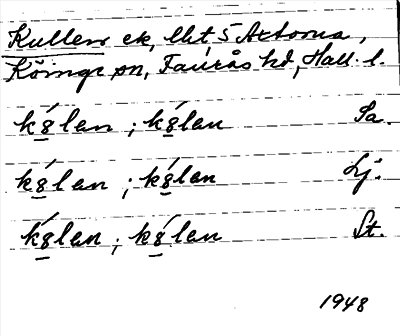 Kullen ek, lht 5 Axtorna,
Köinge sn, Faurås hd, Hall. l.
kǵ̲lan ; kǵ̲lan Sa.
kǵ̲lan ; kǵ̲lan Lj.
kǵ̲lan ; kǵ̲lan St.
1948